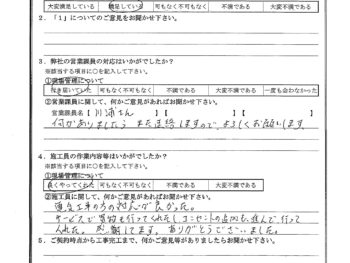 大変満足している 満足している 可もなく不可もなく 不満である 大変不満である
2．「1」についてのご意見をお聞かせ下さい。
3．弊社の営業課員の対応はいかがでしたか？
※該当する項目に○を記入して下さい。
①現場管理について
行き届いていた 可もなく不可もなく 不満である 大変不満である 一度も会わなかった
②営業課員に関して、何かご意見があればお聞かせ下さい。
営業課員名【 さん 】【 】【 】
何かありましたら また連絡しますので、よろしくお願いします。
4．施工員の作業内容等はいかがでしたか？
※該当する項目に○を記入して下さい。
①現場管理について
良くやってくれた 可もなく不可もなく 不満である 大変不満である
②施工に関して、何かご意見があればお聞かせ下さい。
工事の方の対応が良かった。
サービスで 行ってくれたし、コンセントの 進んで行って
くれた。感謝してます。ありがとうございました。
5．ご契約時点から工事完工まで、何かご意見等がありましたらお聞かせ下さい。